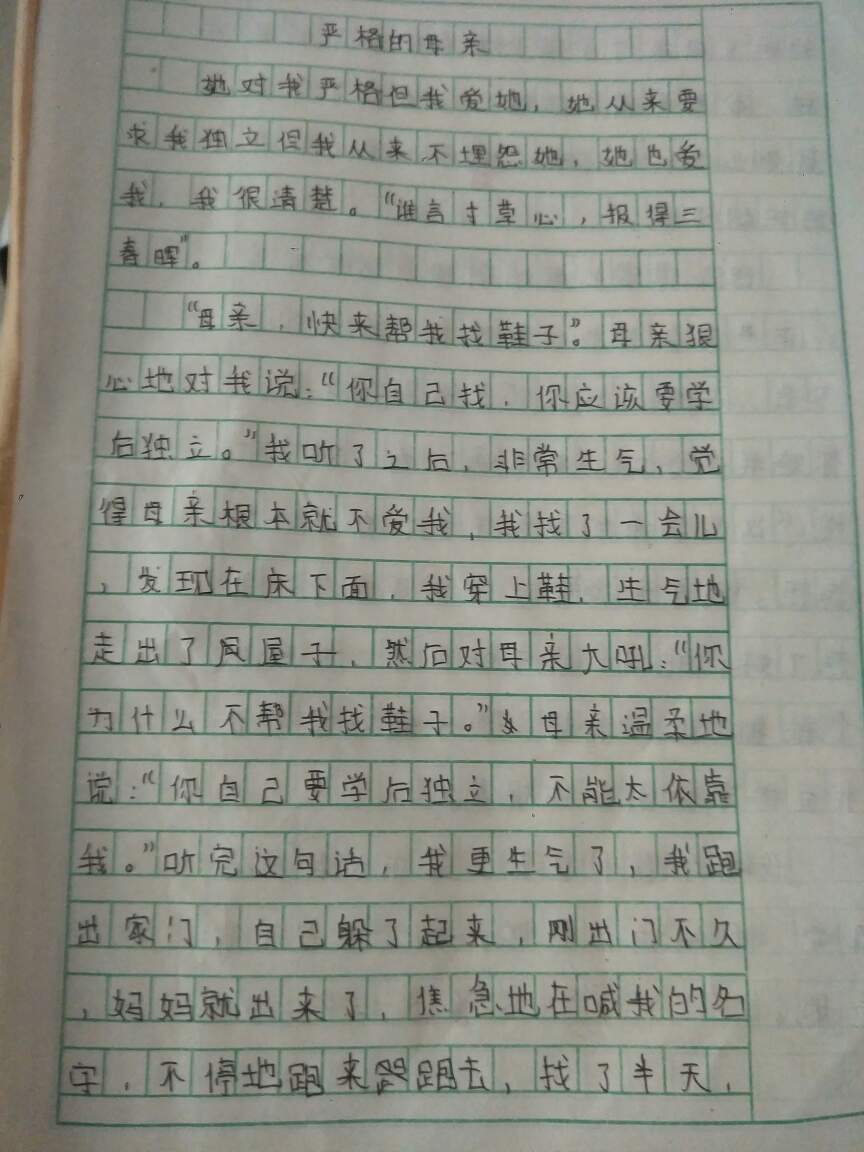 严格的母亲
她对我严格但我爱她，她从来要
求我独立但我从来不埋怨她，她也爱
我，我很清楚。“谁言寸草心，报得三
春晖”。
“母亲，快来帮我找鞋子”。母亲狠
心地对我说：“你自己找，你应该要学
后独立。”我听了之后，非常生气，觉
得母亲根本就不爱我，我找了一会儿
，发现在床下面，我穿上鞋，生气地
走出了屋子，然后对母亲大吼：“你
为什么不帮我找鞋子。”母亲温柔地
说：“你自己要学后独立，不能太依靠
我。”听完这句话，我更生气了，我跑
出家门，自己躲了起来，刚出门不久
，妈妈就出来了，焦急地在喊我的名
字，不停地跑来跑去，找了半天，